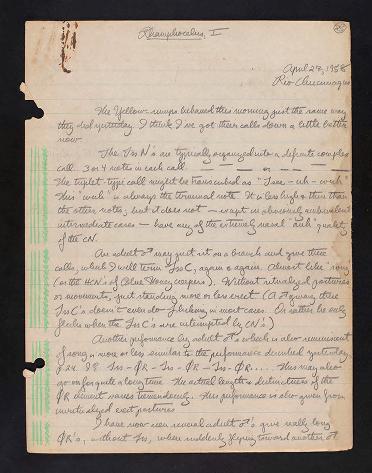 Rhamphocelus, I
April 27, 1958
Rio Chucunaque
The Yellow-rumps behaved this morning just the same way
they did yesterday. I think I've got their calls down a little better
now.
The TssN's are typically organized into a definite complex
call. 3 or 4 notes in each call. — — — or — — — —
The triplet-type call might be transcribed as "Tsee-uh-wuh"
This "wuh" is always the terminal note. It is less high & thin than
the other notes, but it does not — except in obviously ambivalent
intermediate cases — have any of the extremely nasal "auh" quality
of the CN.
An adult ♂ may just sit on a branch and give these
calls, which I will term TssC, again & again. Almost like "song"
(or the HCN's of Blue Honeycreepers). Without ritualized postures
or movements, just standing more or less erect. (A ♂ giving these
TssC's doesn't even do flicking in most cases. Or rather he only
flicks when the TssC's are interrupted by CN's.)
Another performance by adult ♂, which is also reminiscent
of song, is more or less similar to the performance described yesterday,
p. 28. Tss-ØR-Tss-ØR-Tss-ØR.... This may also
go on for quite a long time. The actual length & distinctness of the
ØR element varies tremendously. This performance is also given from
unritualized erect postures
I have now seen several adult ♂'s give really long
ØR's, without Tss, when suddenly flying toward another ♂